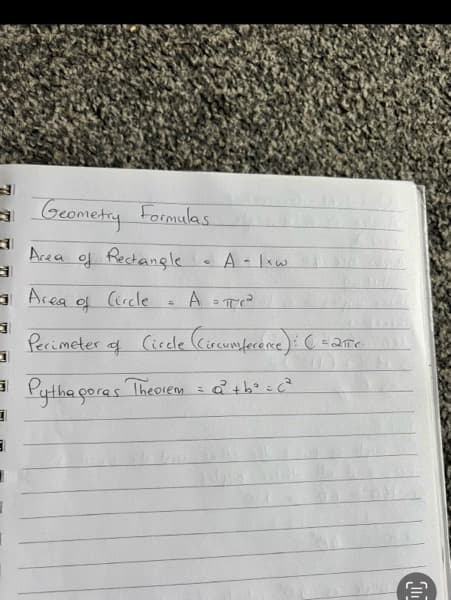 Geometry Formulas
Area of Rectangle = A = l × w
Area of Circle = A = πr²
Perimeter of Circle (Circumference): C = 2πr
Pythagoras Theorem = a² + b² = c²